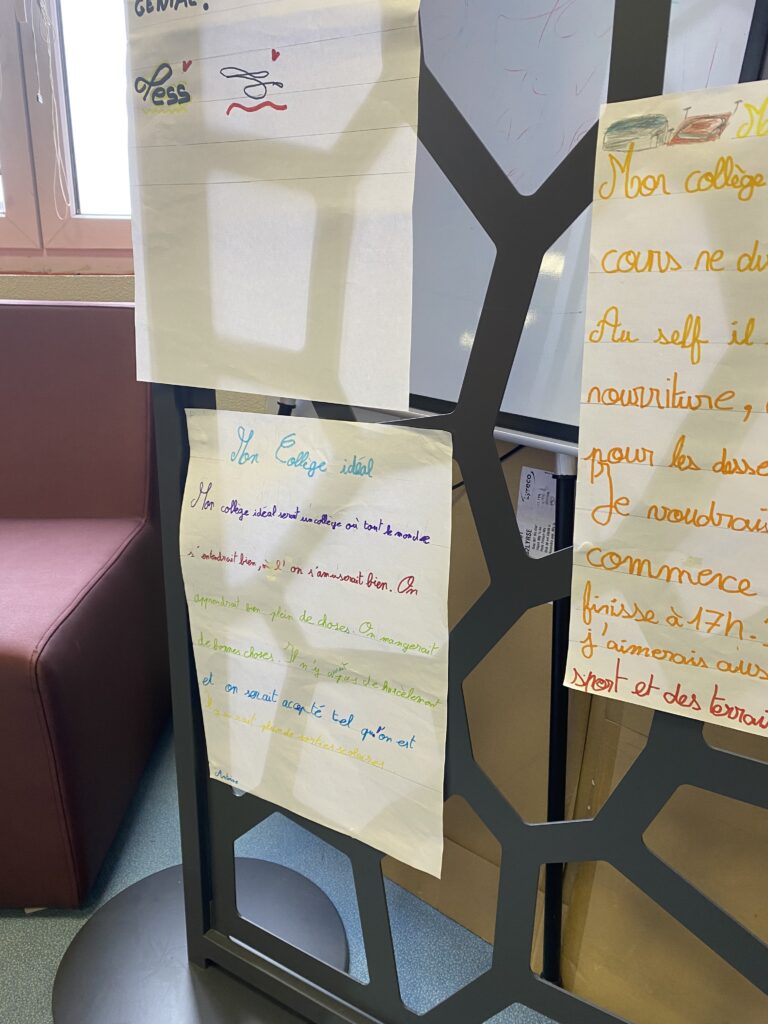 GENIAL!
Tess
Mon Collège idéal
Mon collège idéal serait un collège où tout le monde
s'entendrait bien, où l'on s'amuserait bien. On
apprendrait bien plein de choses. On mangerait
de bonnes choses. Il n'y aurait pas de harcèlement
et on serait accepté tel qu'on est
Il y aurait plein de sorties scolaires.
Mon collège
cours ne du
Au self il
nourriture,
pour les desse
Je voudrais
commerce
finisse à 17h.
j'aimerais auss
sport et des terrai